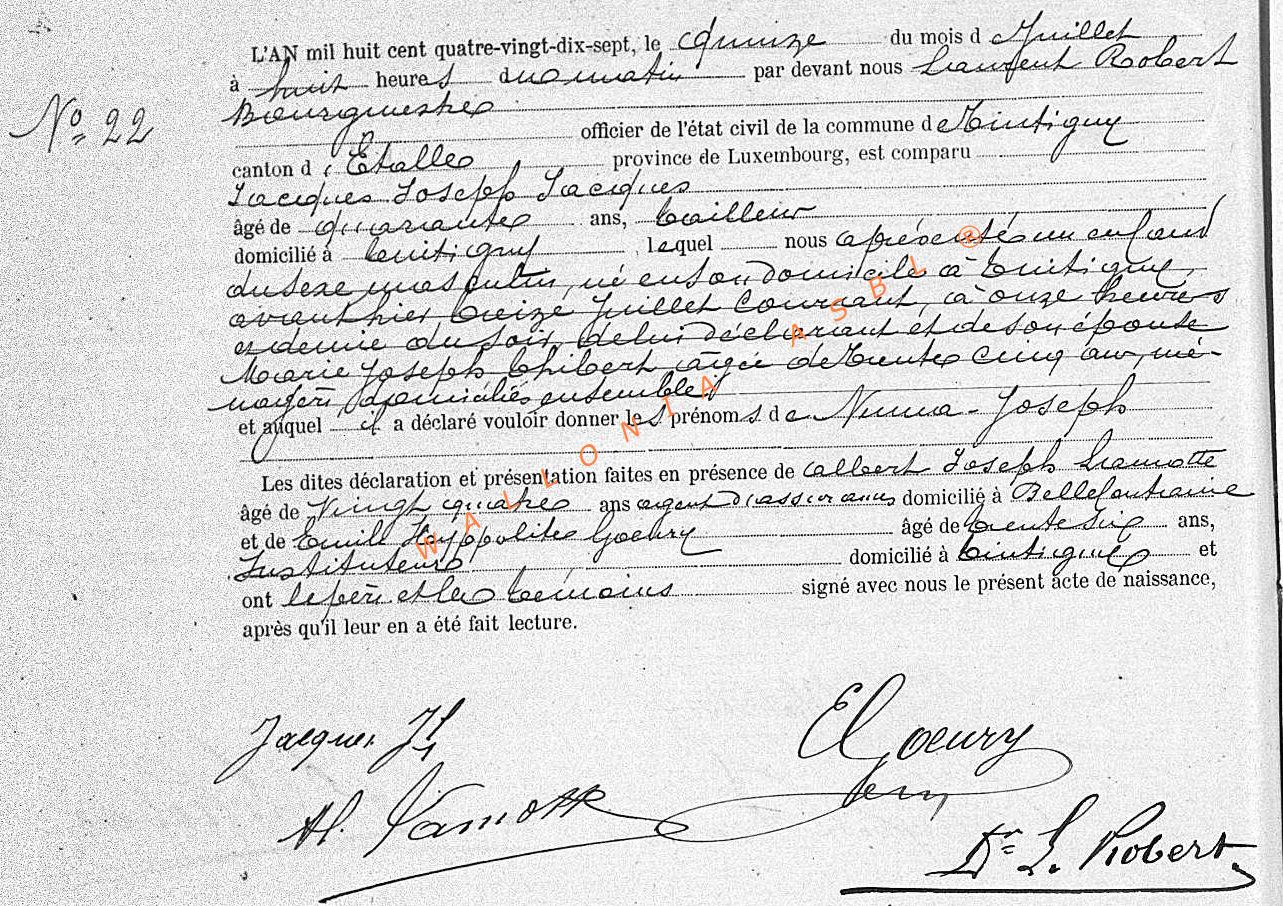 L'AN mil huit cent quatre-vingt-dix-sept, le quinze du mois d Juillet
à huit heures du matin par devant nous Laurent Robert
Bourgmestre
No 22
officier de l'état civil de la commune de Tintigny
canton d'Etalle province de Luxembourg, est comparu
Jacques Joseph Jacques
âgé de quarante ans, tailleur
domicilié à Tintigny lequel nous a présenté un enfant
du sexe masculin, né en son domicile à Tintigny,
avant hier treize Juillet courant, à onze heures
et demie du soir, de lui déclarant et de son épouse
Marie Joseph Thibert âgée de trente cinq ans, mé-
nagère, domiciliés ensemble
et auquel il a déclaré vouloir donner les prénoms de Numa-Joseph
Les dites déclaration et présentation faites en présence de Albert Joseph Lamotte
âgé de Vingt quatre ans agent d'assurances domicilié à Bellefontaine
et de Emile Hyppolite Goeury âgé de trente six ans,
Instituteur domicilié à Tintigny et
ont le père et les témoins signé avec nous le présent acte de naissance,
après qu'il leur en a été fait lecture.
WALLONIA ASBL ®
Jacques JJ
E Goeury
A. Lamotte
Dr L. Robert